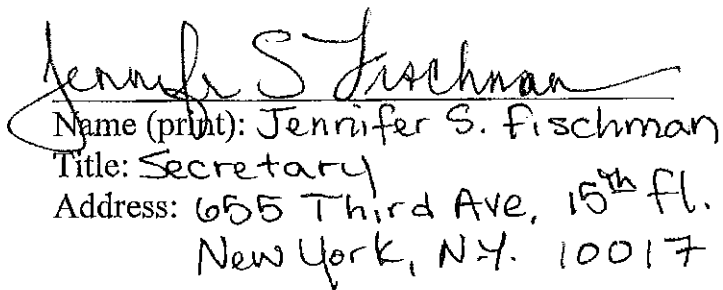 Jennifer S Fischman
Name (print): Jennifer S. Fischman
Title: Secretary
Address: 655 Third Ave, 15th fl.
New York, N.Y. 10017